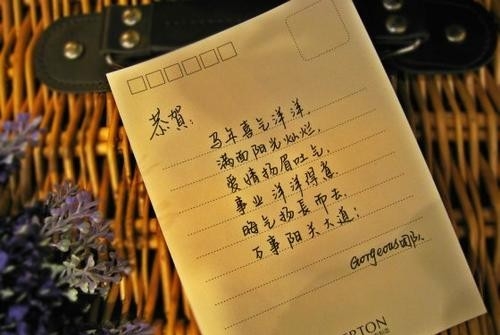 恭賀:
马年喜气洋洋,
满面阳光灿烂,
爱情扬眉吐气,
事业洋洋得意,
晦气扬長而去,
万事阳关大道;
Gorgeous团队
ERTON